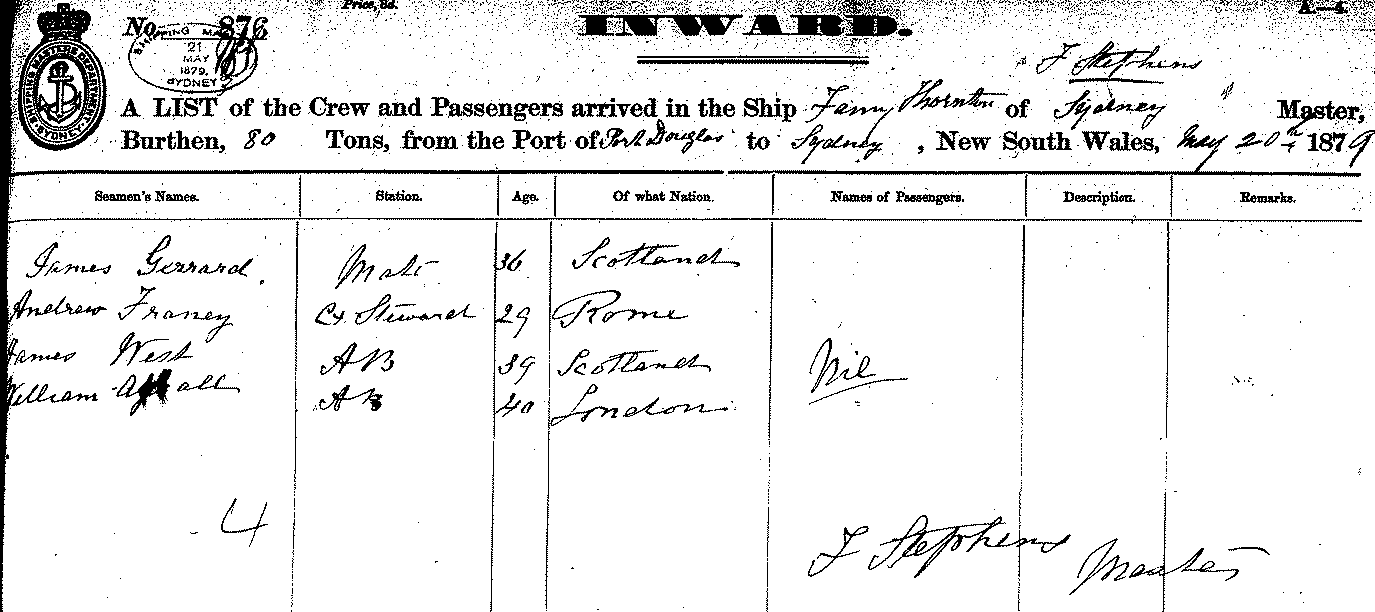 Price, 8d.
A.—4.
No. 876
INWARD.
SHIPPING MASTERS DEPARTMENT SYDNEY
SHIPPING MA
21
MAY
1879.
SYDNEY
F Stephens
A LIST of the Crew and Passengers arrived in the Ship Fanny Thornton of Sydney Master,
Burthen, 80 Tons, from the Port of Port Douglas to Sydney, New South Wales, May 20th 1879
Seamen's Names. Station. Age. Of what Nation. Names of Passengers. Description. Remarks.
James Gerrard. Mate 36 Scotland
Andrew Franey Steward 29 Rome
James West AB 39 Scotland Nil
William AB 40 London
4
F Stephens Master